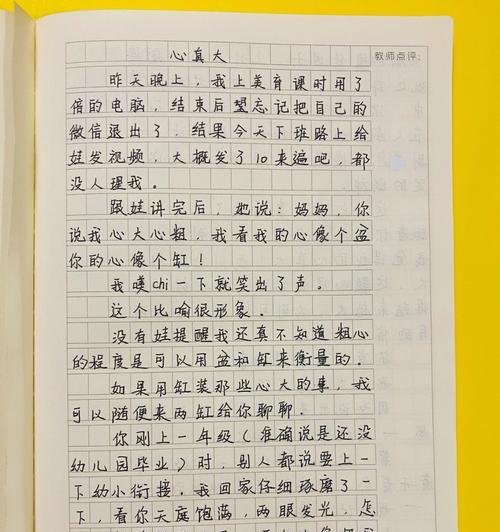 教师点评:
心真大
昨天晚上，我上美育课时用了
倍的电脑，结束后望忘记把自己的
微信退出了，结果今天下班路上给
娃发视频，大概发了10来遍吧，都
没人理我。
跟娃讲完后，她说：妈妈，你
说我心大心粗，我看我的心像个盆
你的心像个缸！
我噗chi一下就笑出了声。
这个比喻很形象。
没有娃提醒我还真不知道粗心
的程度是可以用盆和缸来衡量的.
如果用缸装那些心大的事，我
可以随便来两缸给你聊聊.
你刚上一年级（准确说是还没
幼儿园毕业）时，别人都说要上一
下幼小衔接。我回家仔细琢磨了一
下，看你天庭饱满，两眼发光，怎